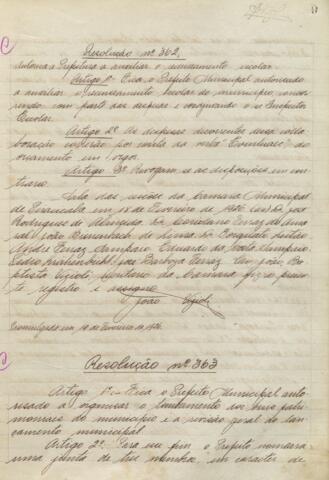 Resolução nº 362
Autorisa a Prefeitura a auxiliar o recenseamento escolar.
Artigo 1º Fica o Prefeito Municipal autorisado
a auxiliar o recenseamento escolar do municipio, concor
rendo com parte das despesas e o Inspector
Escolar.
Artigo 2º As despesas decorrentes dessa colla
boração correrão por conta da verba "Eventuaes" do
orçamento em vigor.
Artigo 3º Revogam-se as disposições em con
trario.
Sala das sessões da Camara Municipal
de Piracicaba em de Fevereiro de 1926.
Rodrigues de Almeida, Ferraz do Ama
ral, João de Lima,
Ferraz Sampaio, Eduardo da Costa Sampaio,
Pedro Krahenbuhl, José Barboza Ferraz. Eu, João Ba
ptista Vizioli, secretario da Camara fiz o presen
te registro e assigno
João Vizioli
Promulgada em de Fevereiro de 1926.
Resolução nº 363
Artigo 1º Fica o Prefeito Municipal auto
risado a organisar o lançamento dos bens patri
moniaes do municipio e a revisão geral do lan
çamento municipal.
Artigo 2º Para esse fim o Prefeito nomeará
uma junta de tres membros, em caracter de